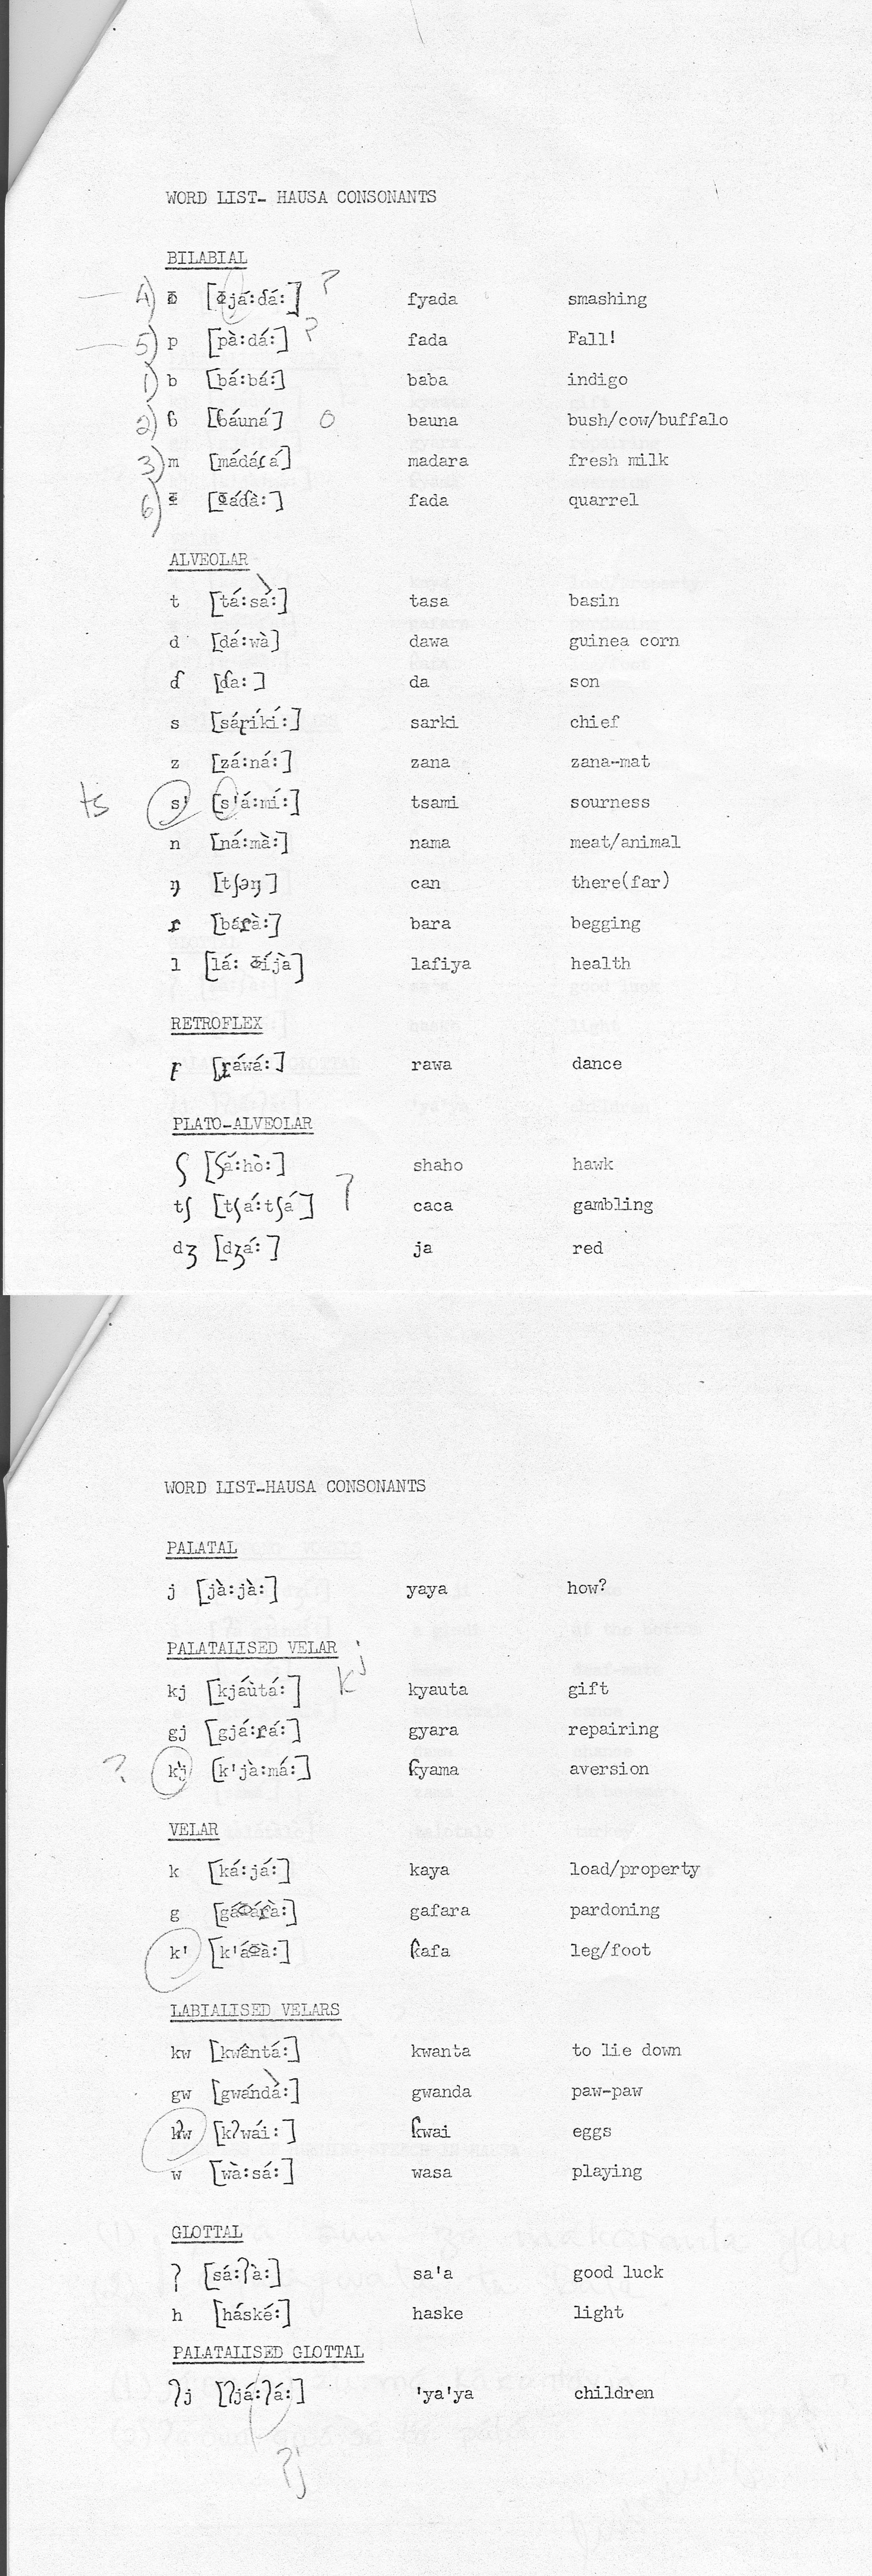 WORD LIST- HAUSA CONSONANTS
BILABIAL
4) ɸ [ɸjá:ɗá:] ? fyada smashing
5) p [pà:dá:] ? fada Fall!
1) b [bá:bá:] baba indigo
2) ɓ [ɓáuná] O bauna bush/cow/buffalo
3) m [mádáɾá] madara fresh milk
6) ɸ [ɸáɗà:] fada quarrel
ALVEOLAR
t [tá:sà:] tasa basin
d [dá:wà] dawa guinea corn
ɗ [ɗa: ] da son
s [sáɽíkí:] sarki chief
z [zá:ná:] zana zana-mat
ts s' [s'á:mí:] tsami sourness
n [ná:mà:] nama meat/animal
ŋ [tʃəŋ ] can there(far)
ɾ [báɾà:] bara begging
l [lá: ɸíjà] lafiya health
RETROFLEX
ɽ [ɽáwá:] rawa dance
PLATO-ALVEOLAR
ʃ [ʃá:hò:] shaho hawk
tʃ [tʃá:tʃá] ? caca gambling
dʒ [dʒá: ] ja red
WORD LIST-HAUSA CONSONANTS
PALATAL
j [jà:jà:] yaya how?
PALATALISED VELAR
kj [kjáùtá:] kʲ kyauta gift
gj [gjá:ɾá:] gyara repairing
? k'j [k'jà:má:] ƙyama aversion
VELAR
k [ká:já:] kaya load/property
g [gáɸáɾà:] gafara pardoning
k' [k'áɸà:] ƙafa leg/foot
LABIALISED VELARS
kw [kwântá:] kwanta to lie down
gw [gwándà:] gwanda paw-paw
kʔw [kʔwái: ] ƙwai eggs
w [wà:sá:] wasa playing
GLOTTAL
ʔ [sá:ʔà:] sa'a good luck
h [háské:] haske light
PALATALISED GLOTTAL
ʔj [ʔjá:ʔá:] 'ya'ya children
ʔj